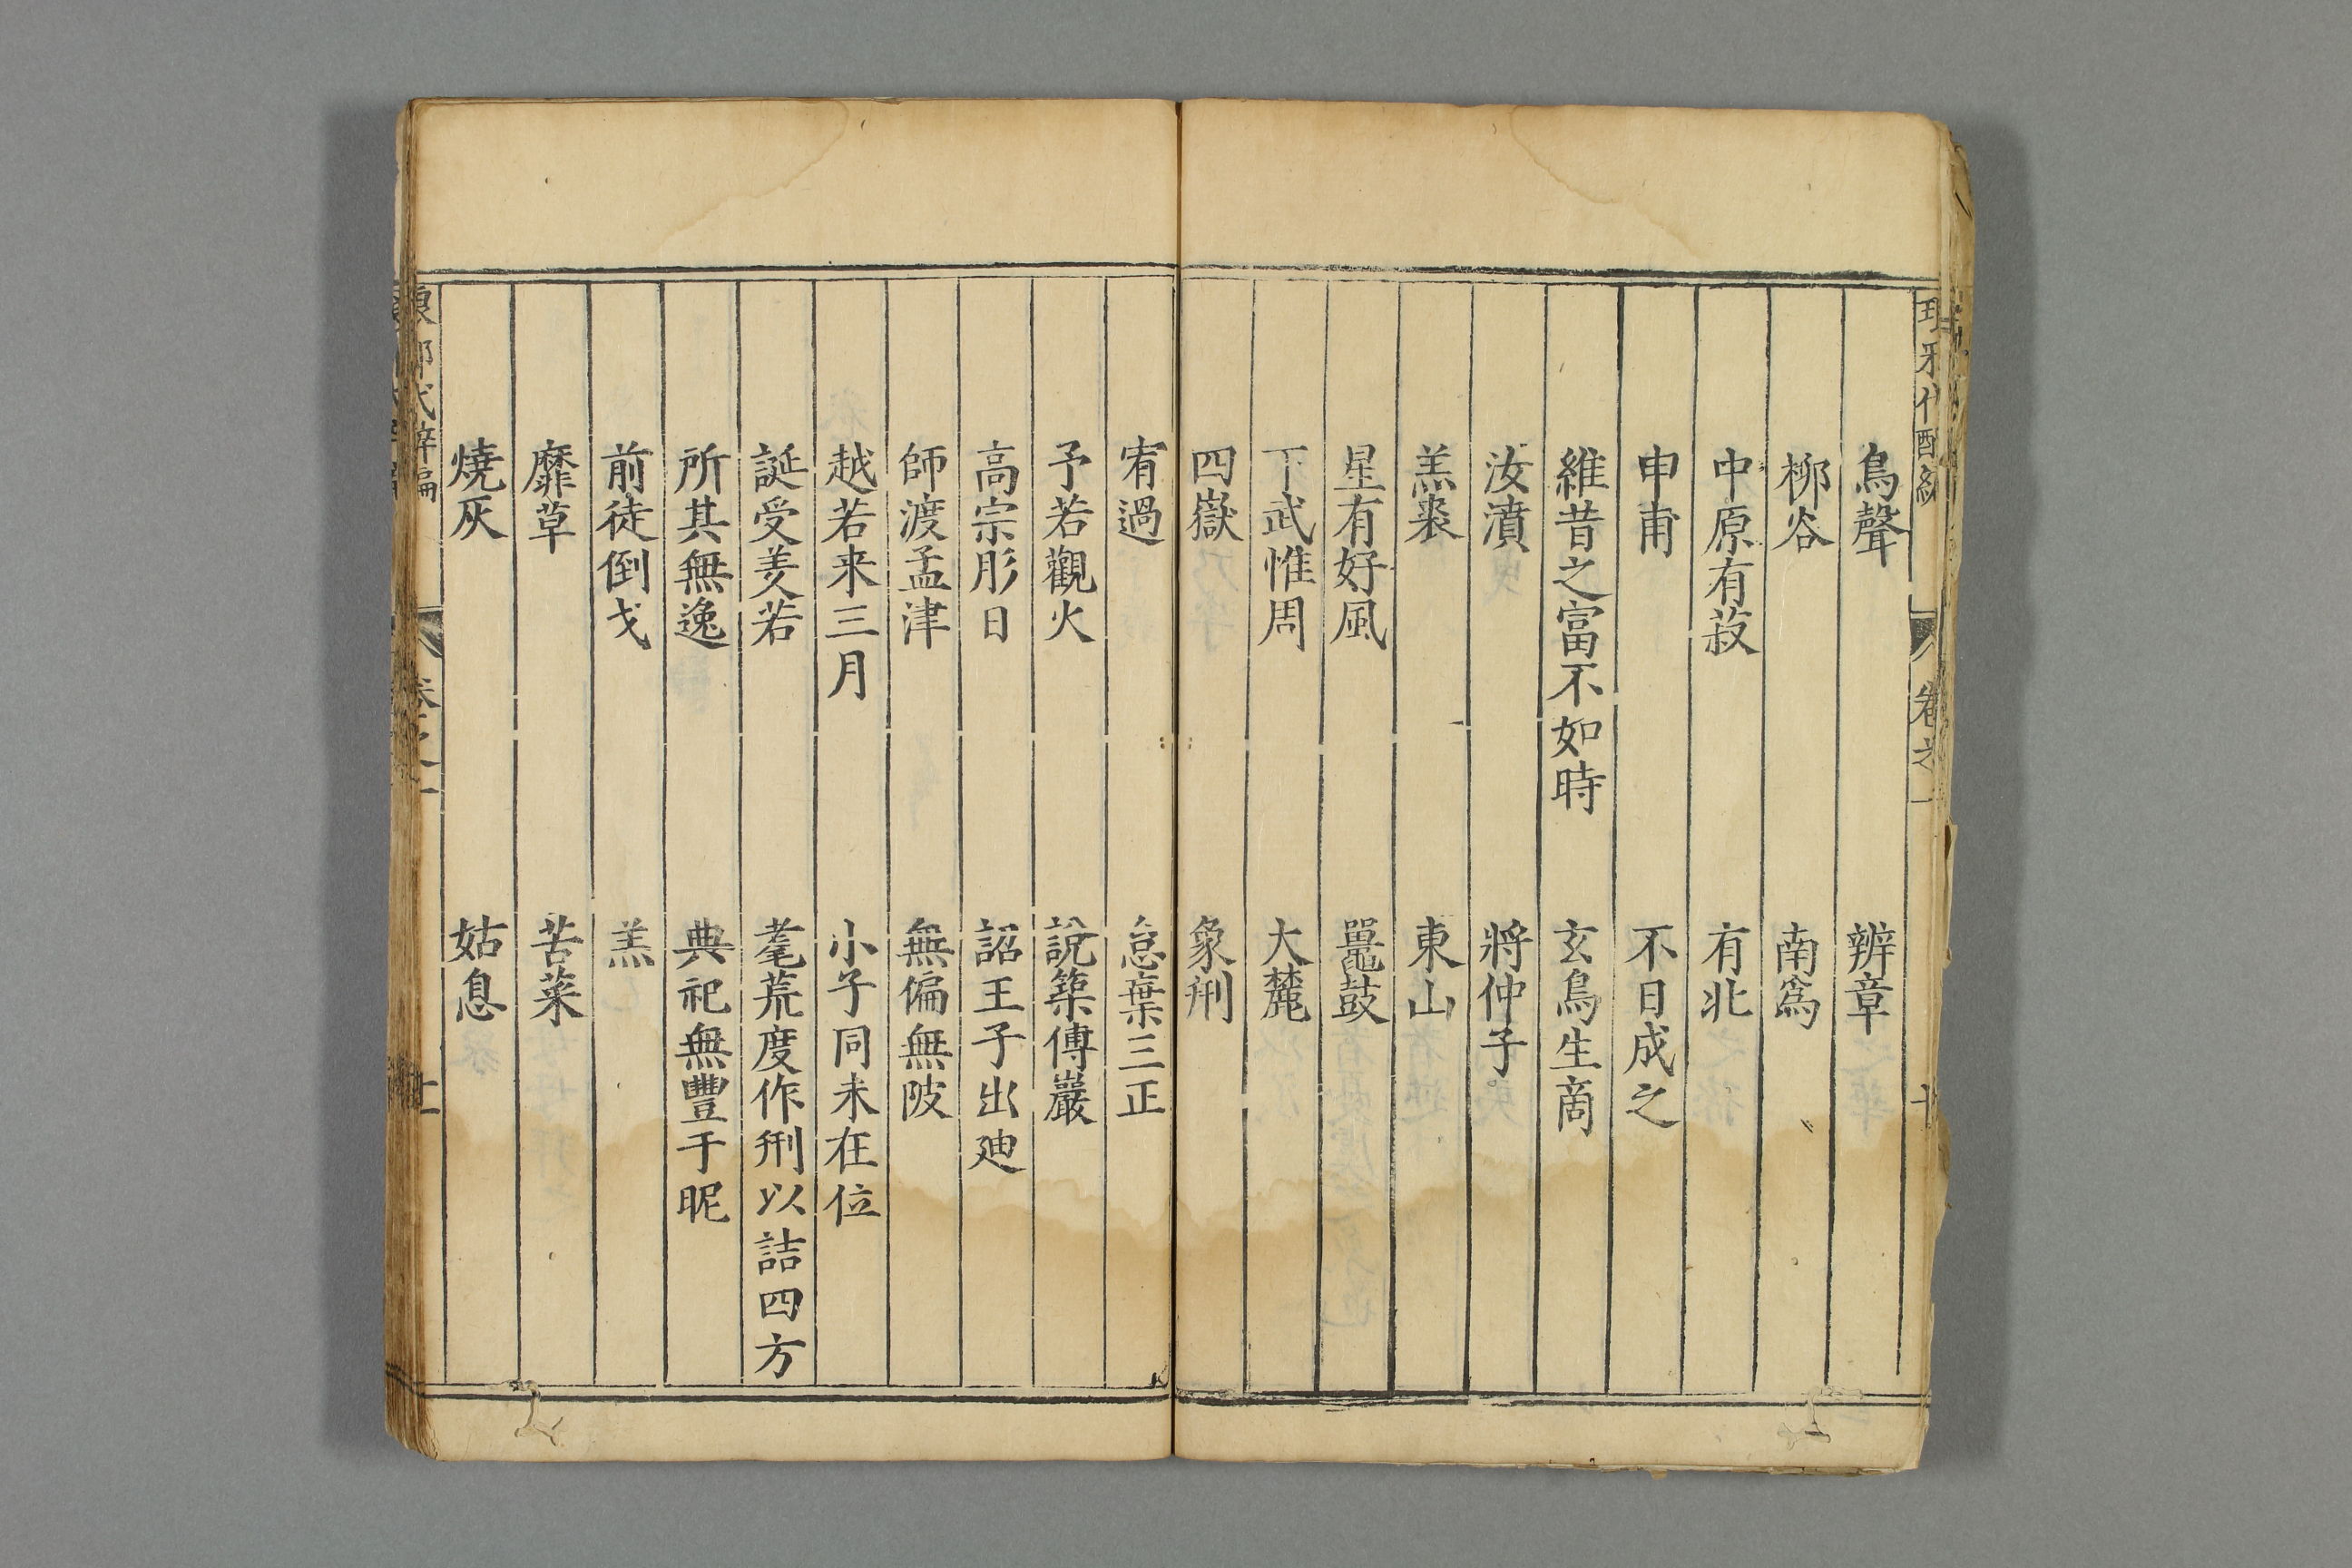 鳥聲 辨章
栁谷 南爲
中原有菽 有北
申甫 不日成之
維昔之富不如時 玄鳥生商
汝濆 將仲子
羔裘 東山
星有好風 鼉鼓
下武惟周 大麓
四嶽 象刑
宥過 怠棄三正
予若觀火 說築傅巖
高宗肜日 詔王子出廸
師渡孟津 無偏無陂
越若来三月 小子同未在位
誕受羑若 耄荒度作刑以詰四方
所其無逸 典祀無豐于昵
前徒倒戈 羔
靡草 苦菜
燒灰 姑息
卷之一